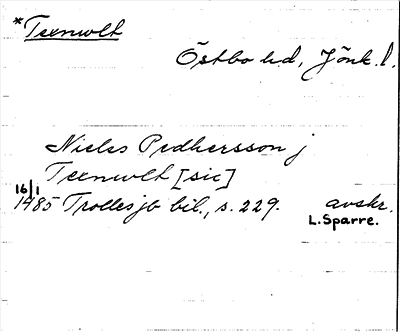 *Texnwlt
Östbo hd, Jönk. l.
Nieles Pedhersson j
Texnwlt [sic]
16/1
1485 Trolles jb bil., s. 229. avskr.
L. Sparre.